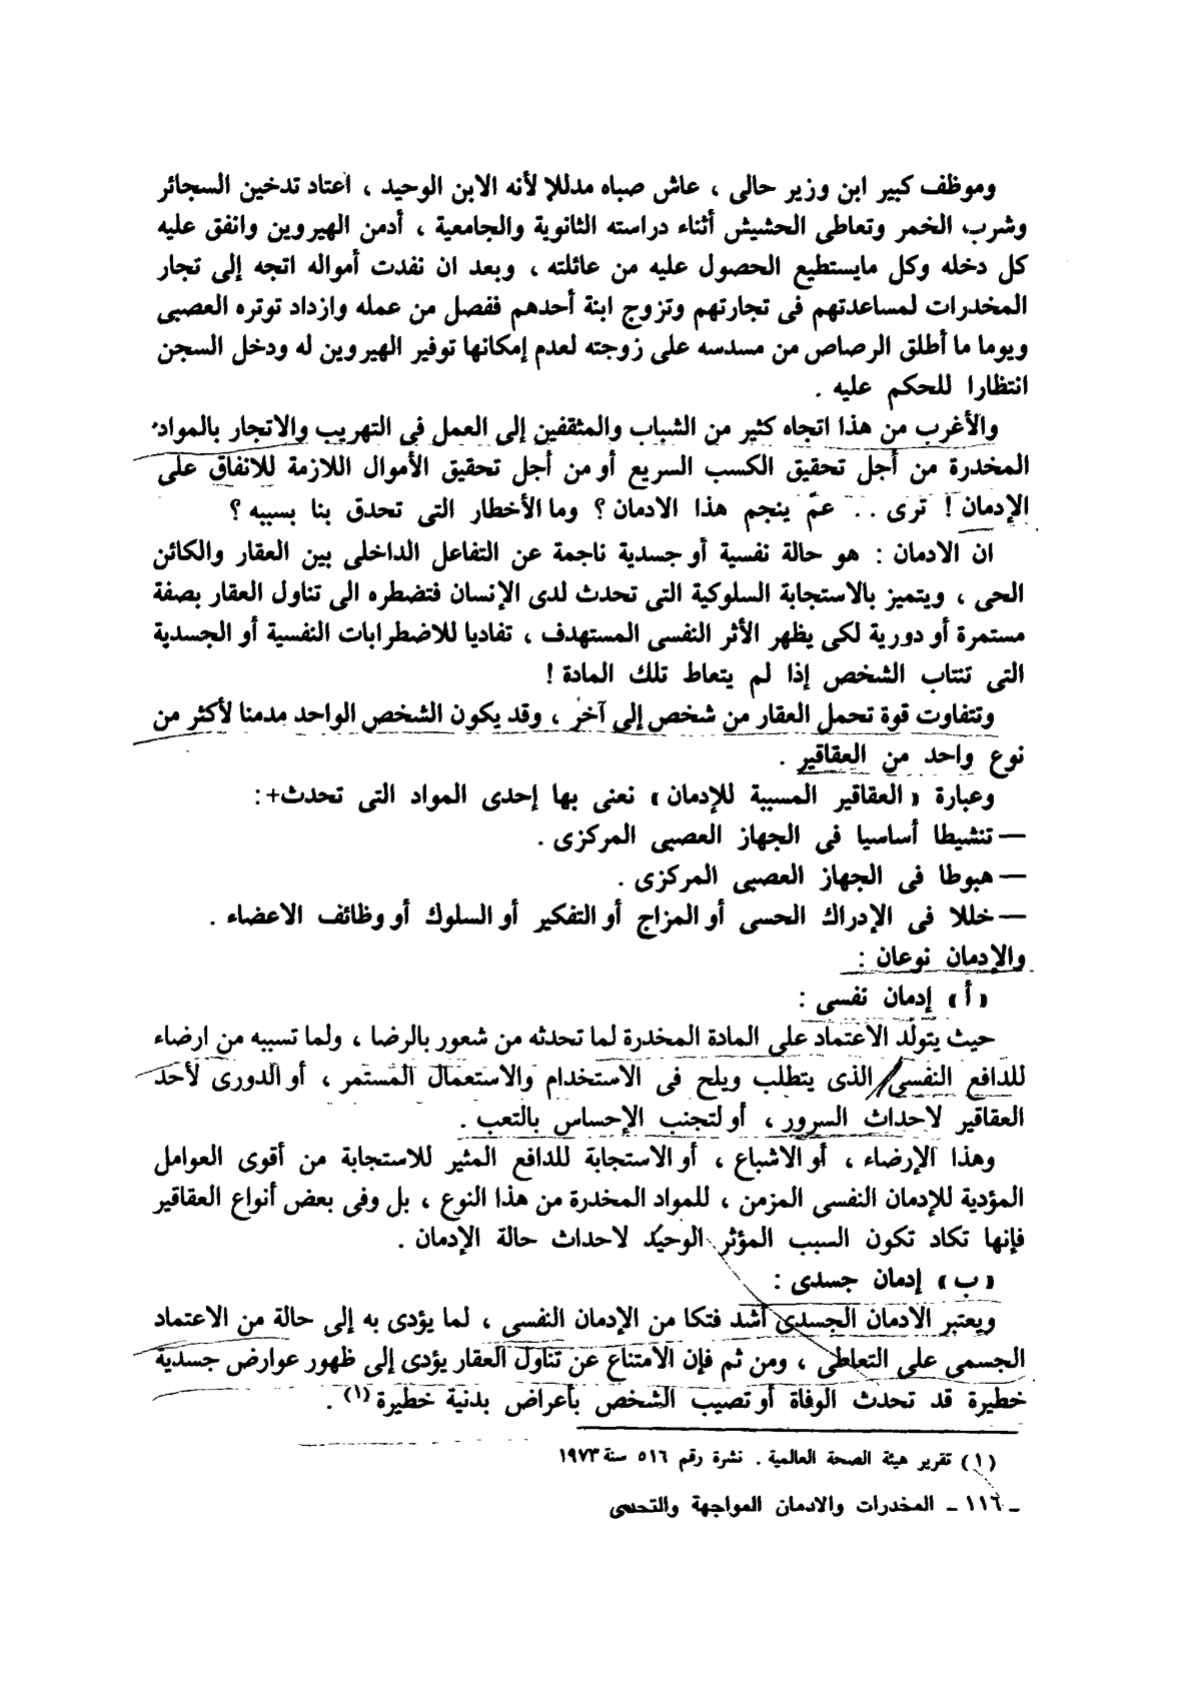 وموظف كبير ابن وزير حالى ، عاش صباه مدللا لأنه الابن الوحيد ، اعتاد تدخين السجائر
وشرب الخمر وتعاطى الحشيش أثناء دراسته الثانوية والجامعية ، أدمن الهيروين وانفق عليه
كل دخله وكل مايستطيع الحصول عليه من عائلته ، وبعد ان نفدت أمواله اتجه إلى تجار
المخدرات لمساعدتهم فى تجارتهم وتزوج ابنة أحدهم ففصل من عمله وازداد توتره العصبى
ويوما ما أطلق الرصاص من مسدسه على زوجته لعدم إمكانها توفير الهيروين له ودخل السجن
انتظارا للحكم عليه .
والأغرب من هذا اتجاه كثير من الشباب والمثقفين إلى العمل فى التهريب والاتجار بالمواد
المخدرة من أجل تحقيق الكسب السريع أو من أجل تحقيق الأموال اللازمة للانفاق على
الإدمان ! ترى .. عمّ ينجم هذا الادمان ؟ وما الأخطار التى تحدق بنا بسببه ؟
ان الادمان : هو حالة نفسية أو جسدية ناجمة عن التفاعل الداخلى بين العقار والكائن
الحى ، ويتميز بالاستجابة السلوكية التى تحدث لدى الإنسان فتضطره الى تناول العقار بصفة
مستمرة أو دورية لكى يظهر الأثر النفسى المستهدف ، تفاديا للاضطرابات النفسية أو الجسدية
التى تنتاب الشخص إذا لم يتعاط تلك المادة !
وتتفاوت قوة تحمل العقار من شخص إلى آخر ، وقد يكون الشخص الواحد مدمنا لأكثر من
نوع واحد من العقاقير .
وعبارة « العقاقير المسببة للإدمان » نعنى بها إحدى المواد التى تحدث+ :
— تنشيطا أساسيا فى الجهاز العصبى المركزى .
— هبوطا فى الجهاز العصبى المركزى .
— خللا فى الإدراك الحسى أو المزاج أو التفكير أو السلوك أو وظائف الاعضاء .
والإدمان نوعان :
« أ » إدمان نفسى :
حيث يتولّد الاعتماد على المادة المخدرة لما تحدثه من شعور بالرضا ، ولما تسببه من ارضاء
للدافع النفسى الذى يتطلب ويلح فى الاستخدام والاستعمال المستمر ، أو الدورى لأحد
العقاقير لاحداث السرور ، أو لتجنب الإحساس بالتعب .
وهذا الإرضاء ، أو الاشباع ، أو الاستجابة للدافع المثير للاستجابة من أقوى العوامل
المؤدية للإدمان النفسى المزمن ، للمواد المخدرة من هذا النوع ، بل وفى بعض أنواع العقاقير
فإنها تكاد تكون السبب المؤثر الوحيد لاحداث حالة الإدمان .
« ب » إدمان جسدى :
ويعتبر الادمان الجسدى أشد فتكا من الإدمان النفسى ، لما يؤدى به إلى حالة من الاعتماد
الجسمى على التعاطى ، ومن ثم فإن الامتناع عن تناول العقار يؤدى إلى ظهور عوارض جسدية
خطيرة قد تحدث الوفاة أو تصيب الشخص بأعراض بدنية خطيرة (١) .
(١) تقرير هيئة الصحة العالمية . نشرة رقم ٥١٦ سنة ١٩٧٣
ـ ١١٦ ـ المخدرات والادمان المواجهة والتحدى